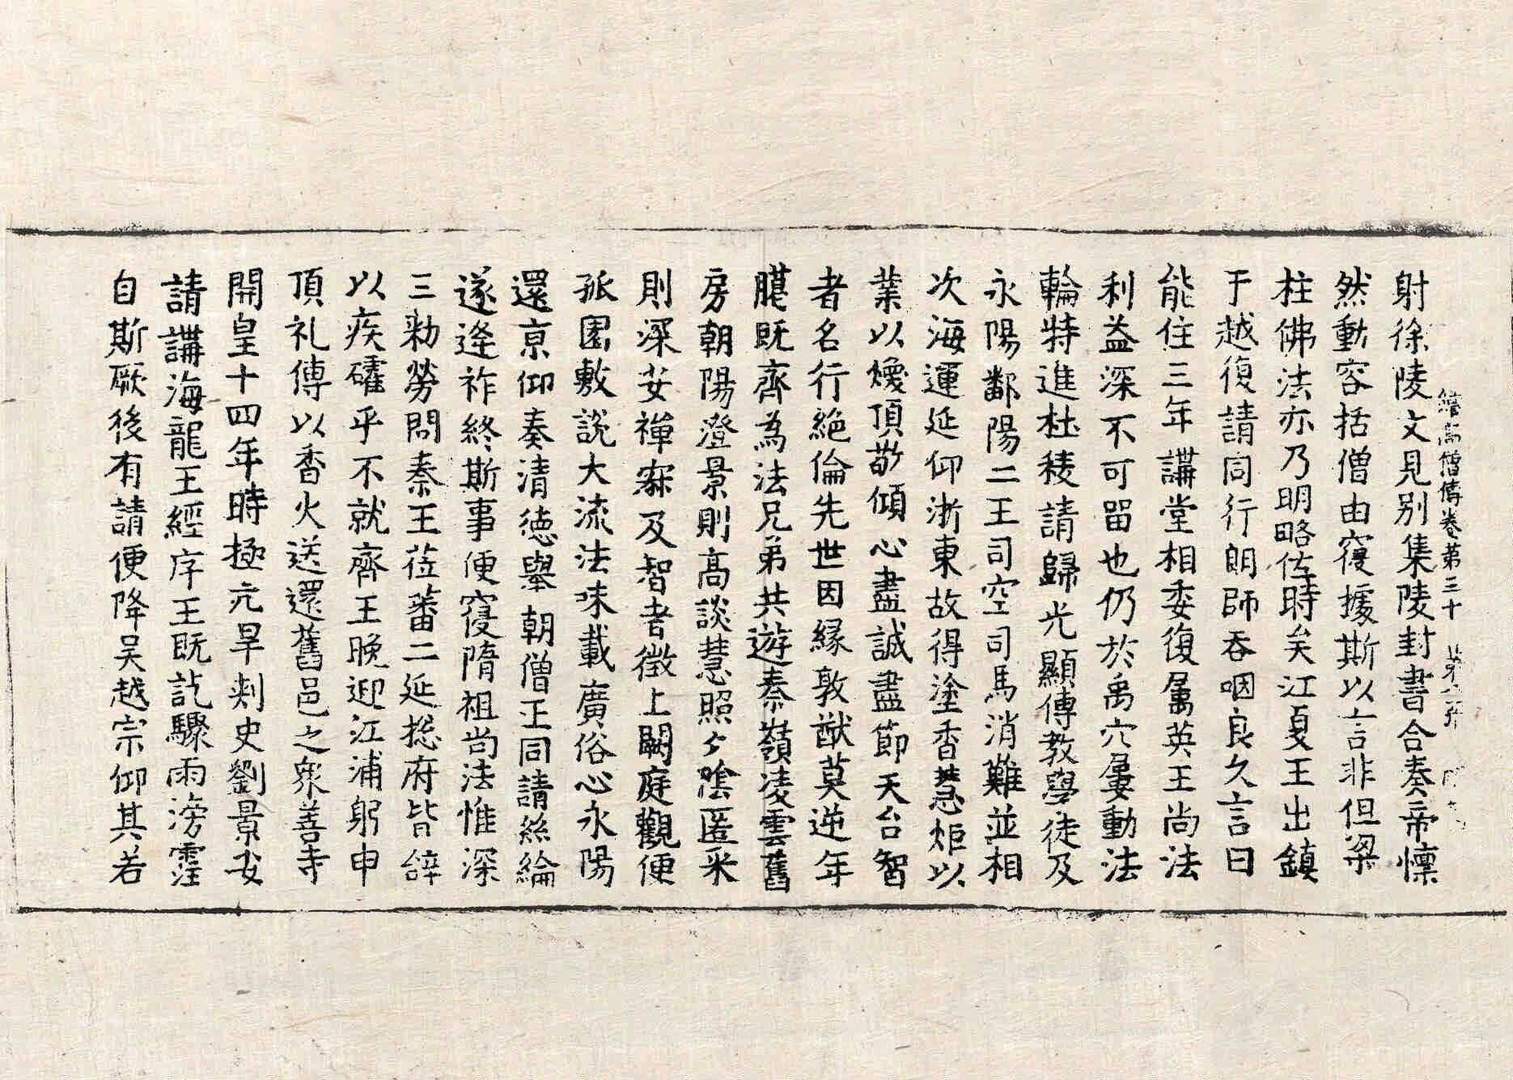 續高僧傳卷第三十
射徐陵文見別集陵封書合奏帝懍
然動容括僧由寢據斯以言非但梁
柱佛法亦乃明略佐時矣江夏王出鎮
于越復請同行朗師吞咽良久言曰
能住三年講堂相委復屬英王尚法
利益深不可留也仍於禹穴屢動法
輪特進杜稜請歸光顯傳教學徒及
永陽鄱陽二王司空司馬消難並相
次海運延仰浙東故得塗香慧炬以
業以燰頂敬傾心盡誠盡節天台智
者名行絕倫先世因緣敦猷莫逆年
臈既齊為法兄弟共遊秦嶺凌雲舊
房朝陽澄景則高談慧照夕陰匿采
則深安禪寂及智者徵上闕庭觀便
孤園敷說大流法味載廣俗心永陽
還京仰奏清德舉朝僧正同請絲綸
遂逢祚終斯事便寢隋祖尚法惟深
三勑勞問秦王莅蕃二延揔府皆辭
以疾礭乎不就齊王晚迎江浦躬申
頂礼傳以香火送還舊邑之衆善寺
開皇十四年時極亢旱刾史劉景安
請講海龍王經序王既訖驟雨滂霔
自斯厥後有請便降吳越宗仰其若